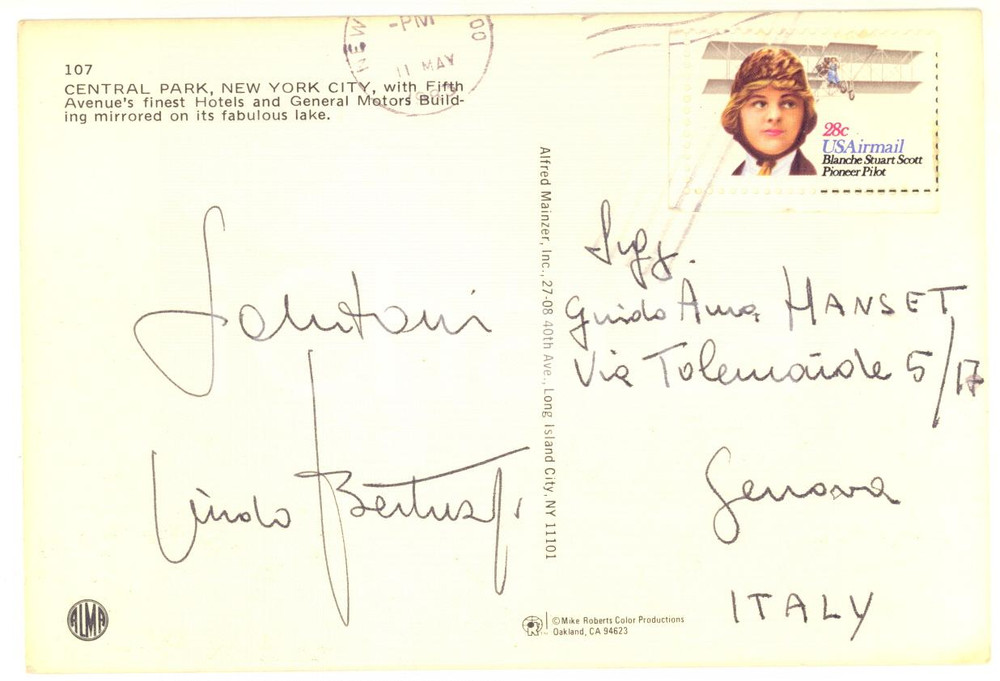 107
CENTRAL PARK, NEW YORK CITY, with Fifth
Avenue's finest Hotels and General Motors Build-
ing mirrored on its fabulous lake.
NEW
-PM
00
11 MAY
28c
USAirmail
Blanche Stuart Scott
Pioneer Pilot
Alfred Mainzer, Inc., 27-08 40th Ave., Long Island City, NY 11101
Sigg.
Guido Anna HANSET
Via Tolemaide 5/17
Genova
ITALY
Salutoni
ALMA
©Mike Roberts Color Productions
Oakland, CA 94623